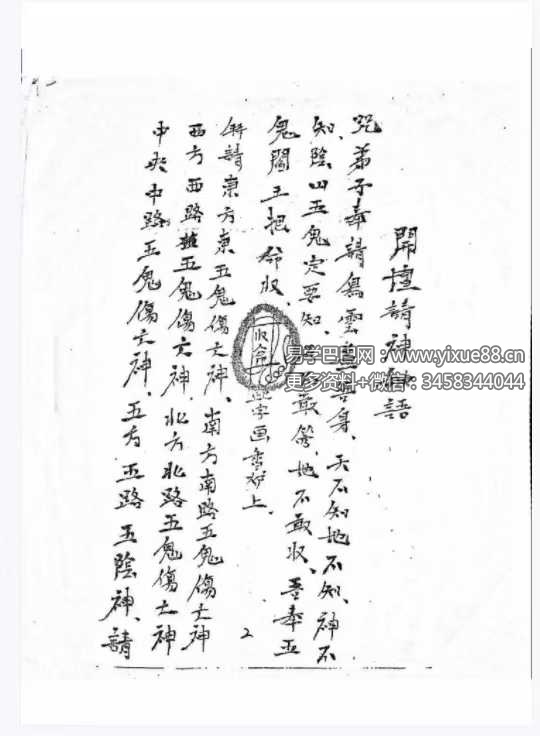 開壇請神
咒弟子奉請烏雲身、天不知地不知、神不
知、陰山五鬼定要知、敢管、地不敢收、吾奉五
鬼閻王把命收、
收命
字画香炉上.
再請東方東五鬼傷亡神、南方南路五鬼傷亡神
西方西路五鬼傷亡神.北方北路五鬼傷亡神
中央中路五鬼傷亡神、五方五路五陰神、請
2
易学巴巴网:www.yixue88.cn
更多资料+微信:3458344044